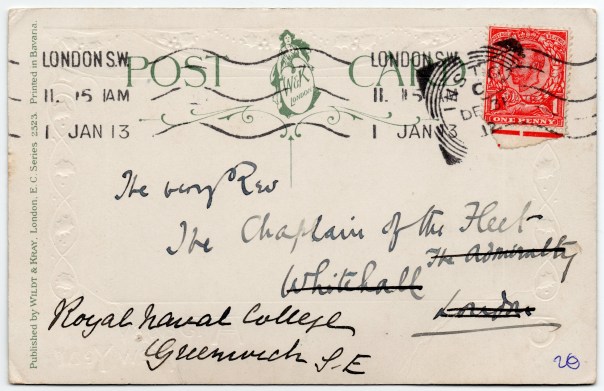 LONDON.S.W. LONDON.S.W.
POST CARD
W&K
LONDON
11. 15 AM 11. 15 AM
1 JAN 13 1 JAN 13
ONE PENNY
The very Rev
The Chaplain of the Fleet
The Admiralty
Whitehall
London
Royal Naval College
Greenwich S.E
20
Published by WILDT & KRAY, London, E.C. Series 2523. Printed in Bavaria.